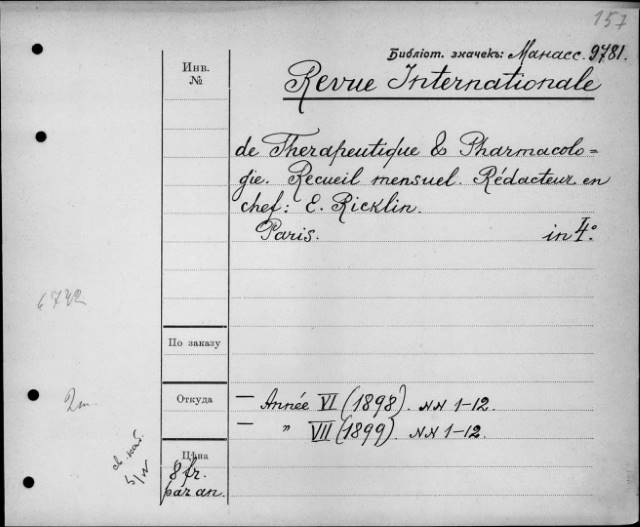 157
Библіот. значекъ: Манасс. 9781.
Инв.
№
Revue Internationale
de Therapeutique & Pharmacolo=
gie. Recueil mensuel. Rédacteur en
chef: E. Ricklin.
Paris. in 4°.
По заказу
Откуда
— Année VI (1898). NN 1-12.
— " VII (1899). NN 1-12.
Цѣна
8 fr.
par an.
2 т